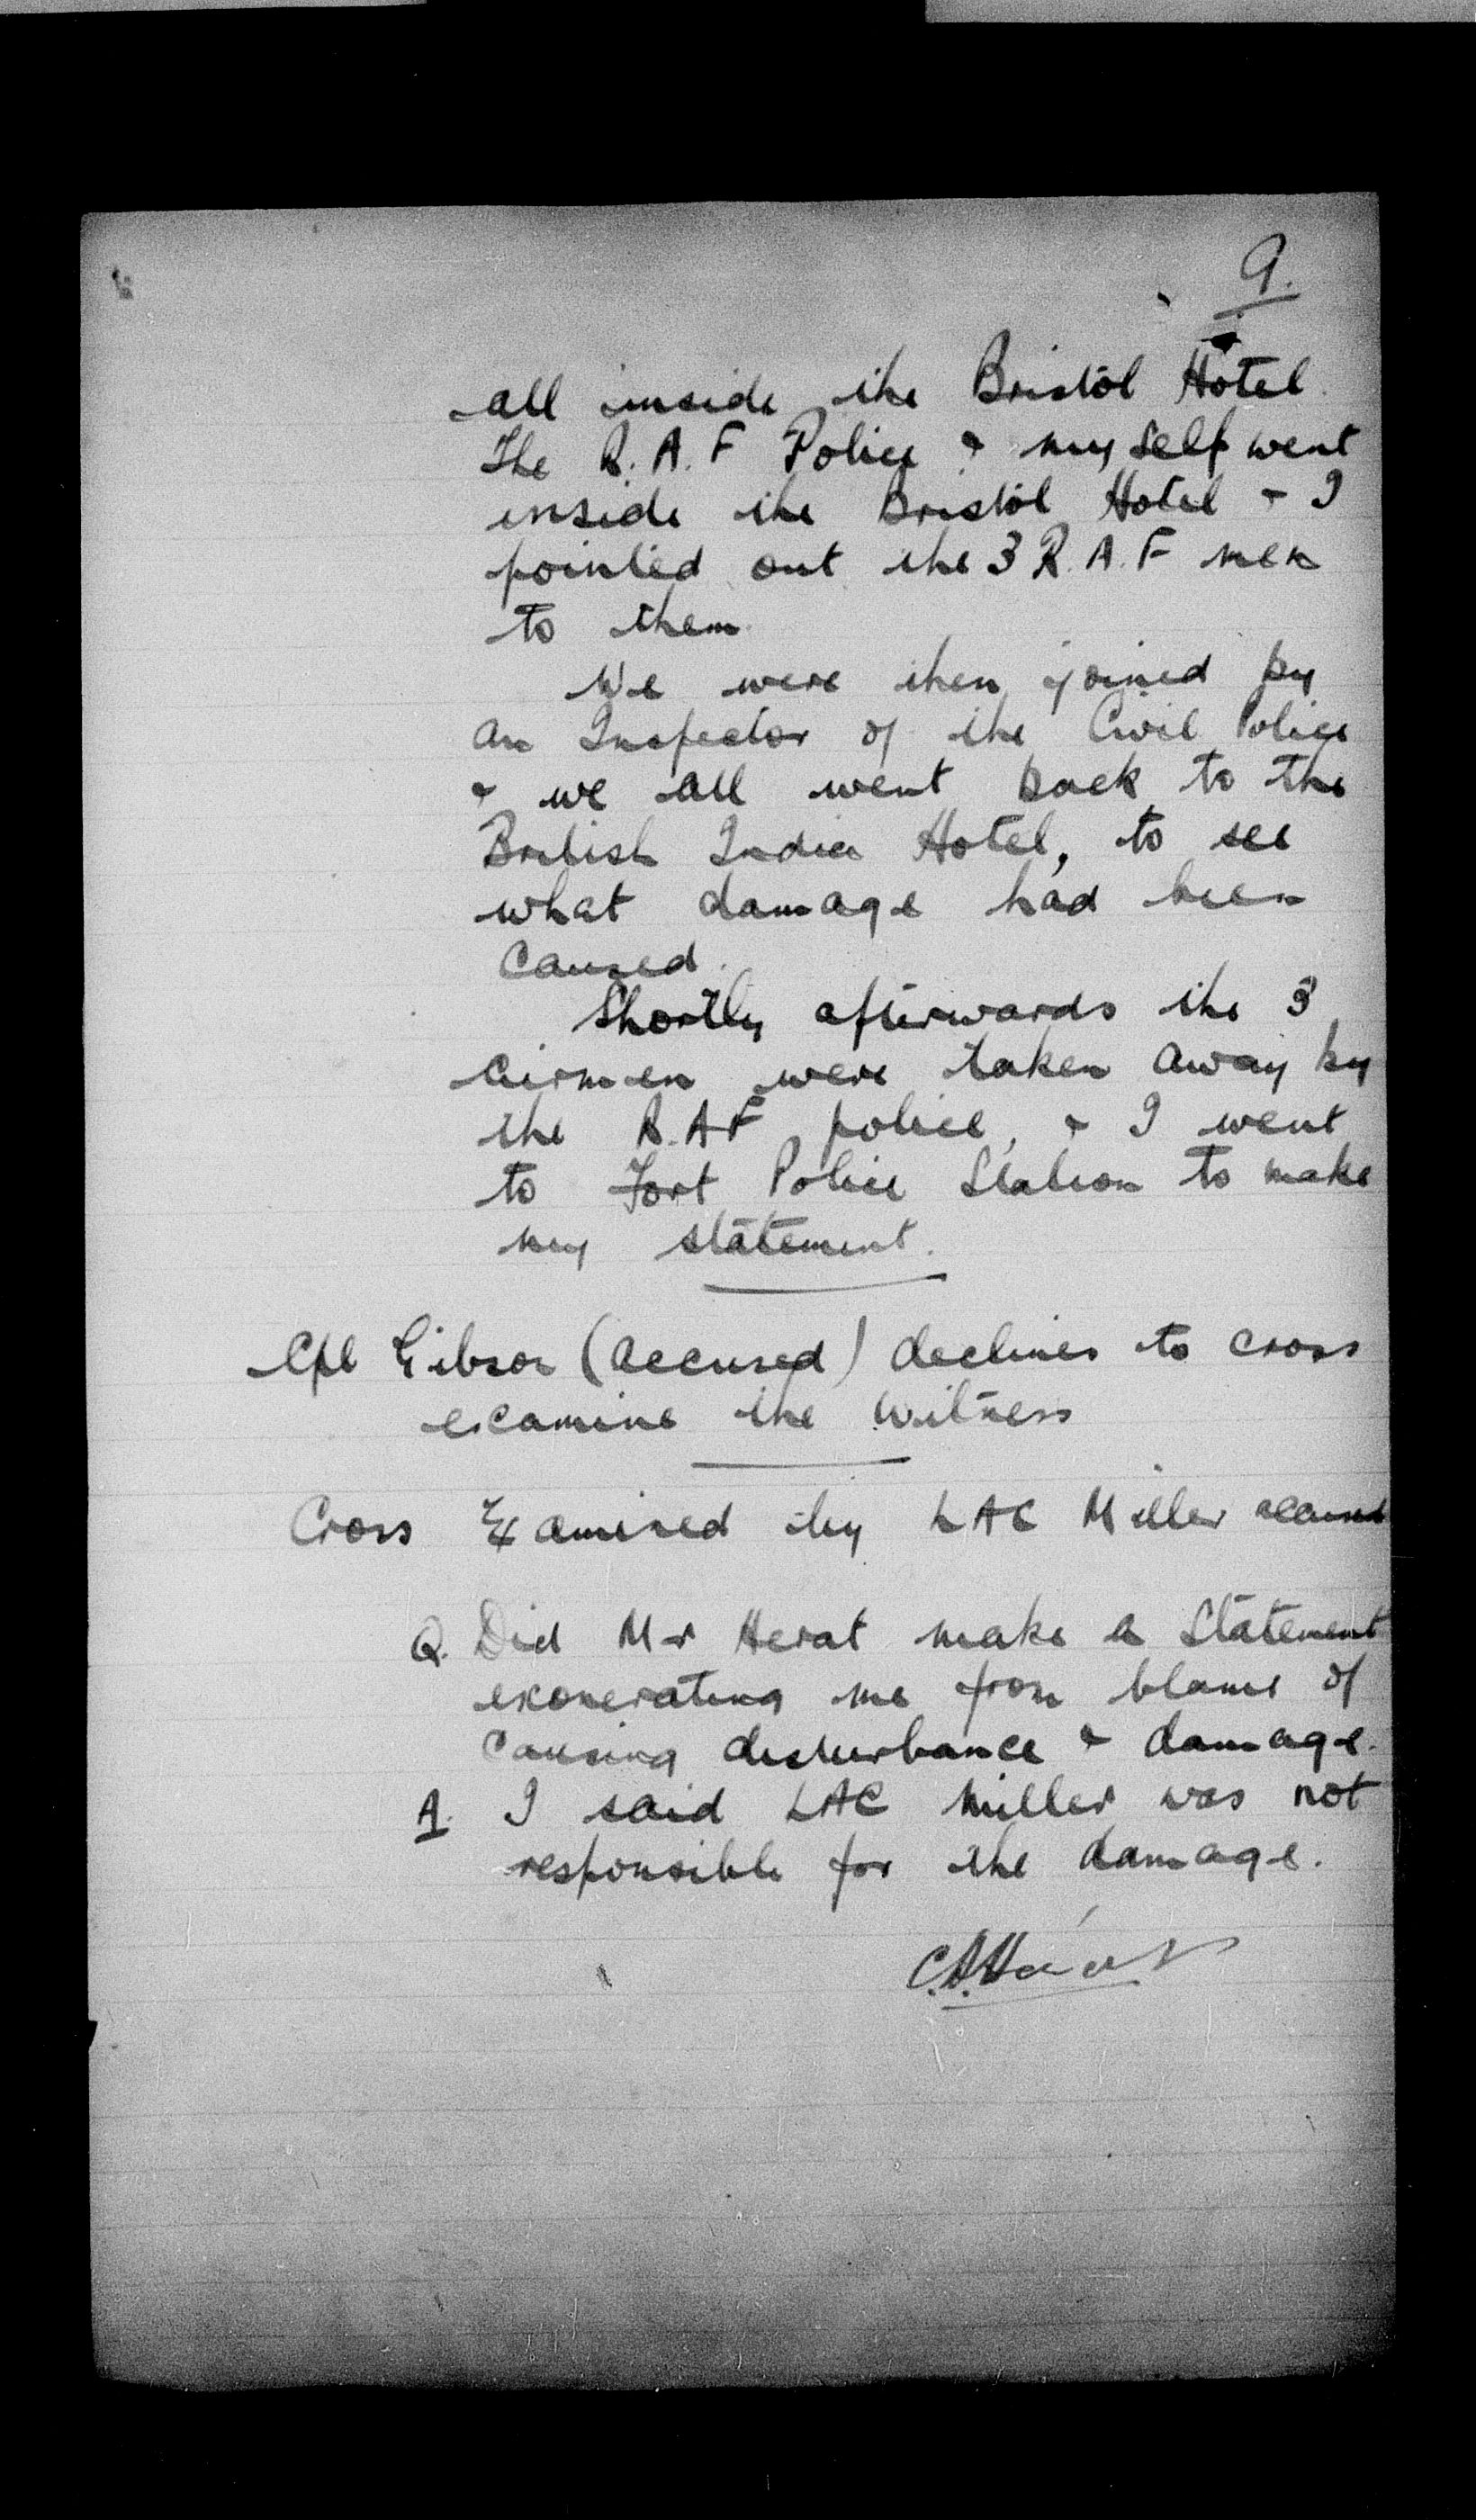 9.
all inside the Bristol Hotel.
The R.A.F Police & myself went
inside the Bristol Hotel & I
pointed out the 3 R.A.F men
to them.
We were then joined by
an Inspector of the Civil Police
& we all went back to the
British India Hotel, to see
what damage had been
caused.
Shortly afterwards the 3
airmen were taken away by
the R.AF police, & I went
to Fort Police Station to make
my statement.
Cpl Gibson (accused) declines to cross
examine the witness
Cross Examined by LAC Miller accused
Q. Did Mr Herat make a statement
exonerating me from blame of
causing disturbance & damage.
A. I said LAC Miller was not
responsible for the damage.
C.A.Herat